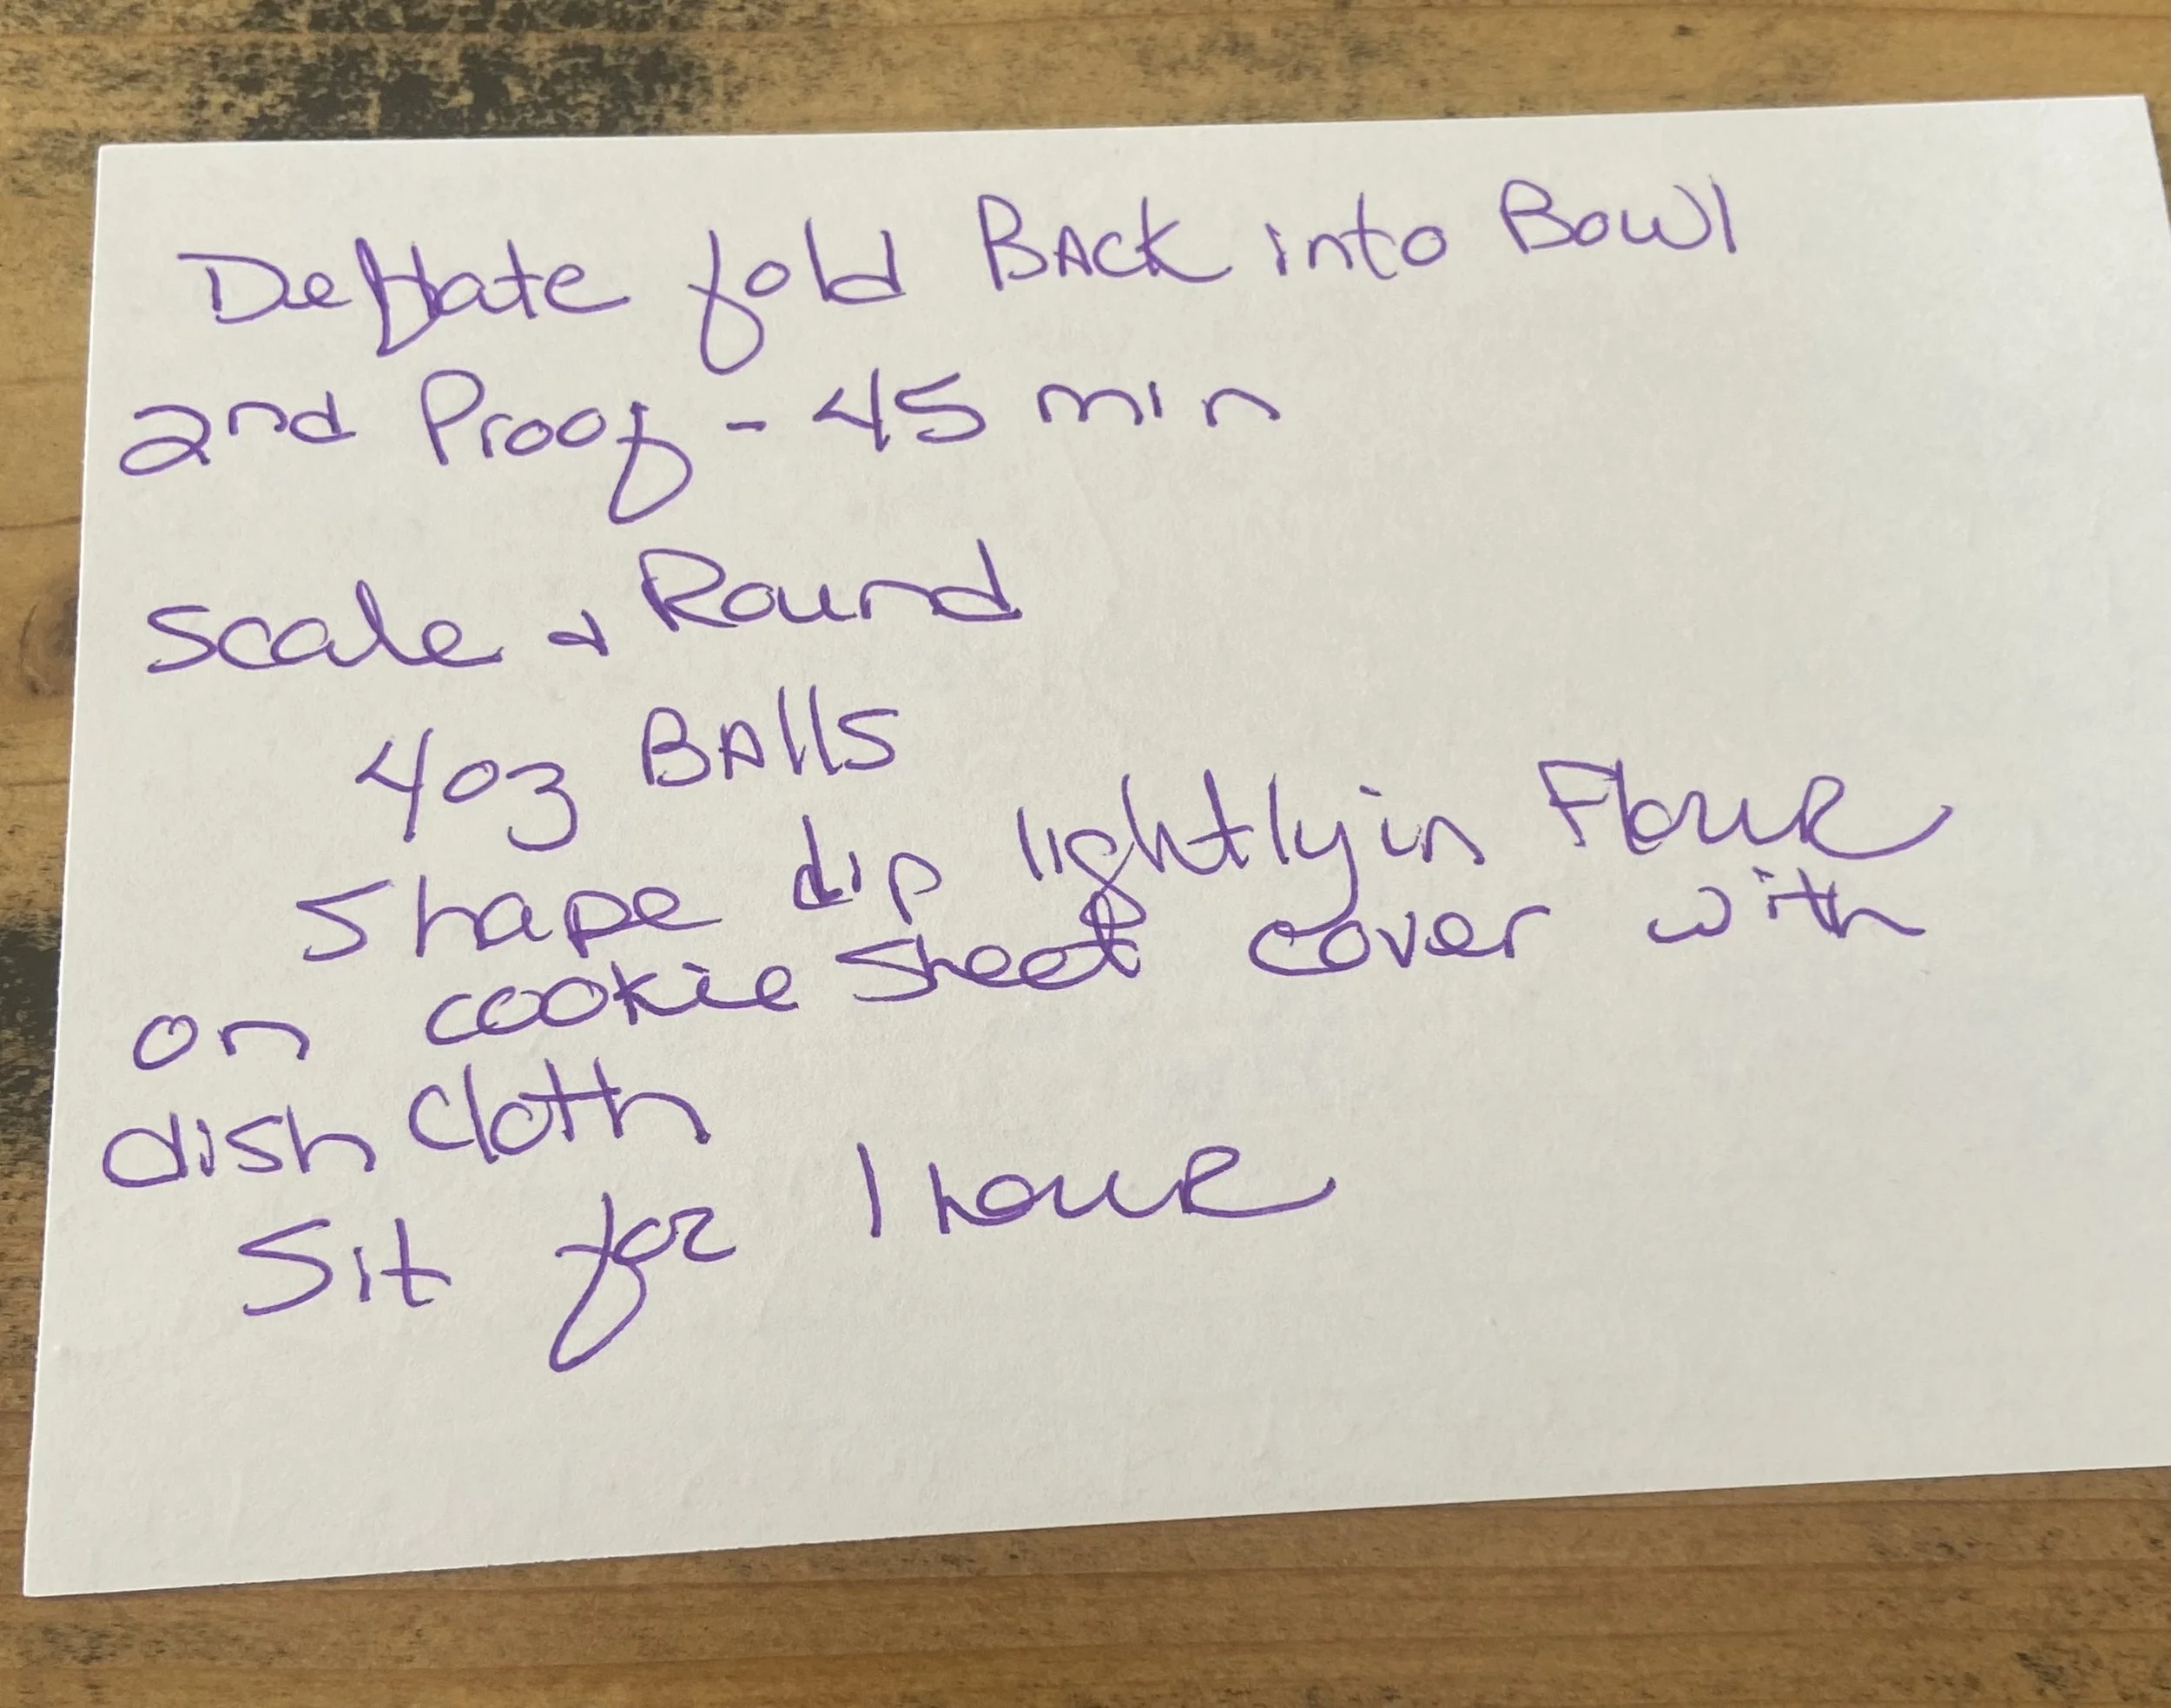 Deflate fold BACK into Bowl
2nd Proof - 45 min
Scale & Round
4oz BAlls
Shape dip lightly in FlouR
on cookie Sheet cover with
dish cloth
Sit for 1 houR